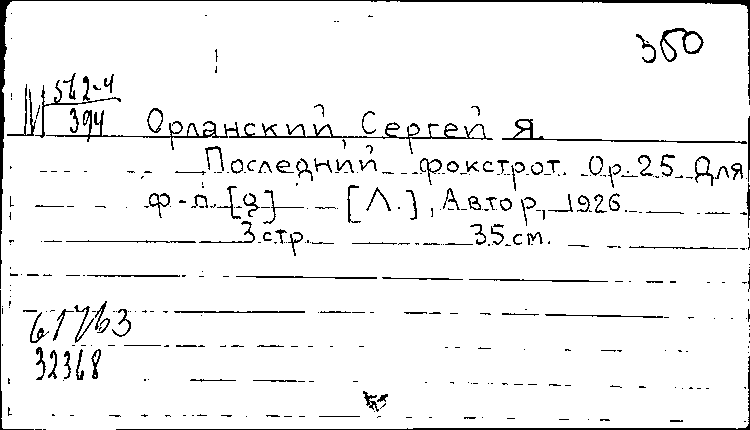 350
М 562-4
394
Орланский, Сергей Я.
Последний фокстрот. Ор. 25. Для
ф-п. [З] [Л.], Автор, 1926
3 стр. 35 см.
61763
32368